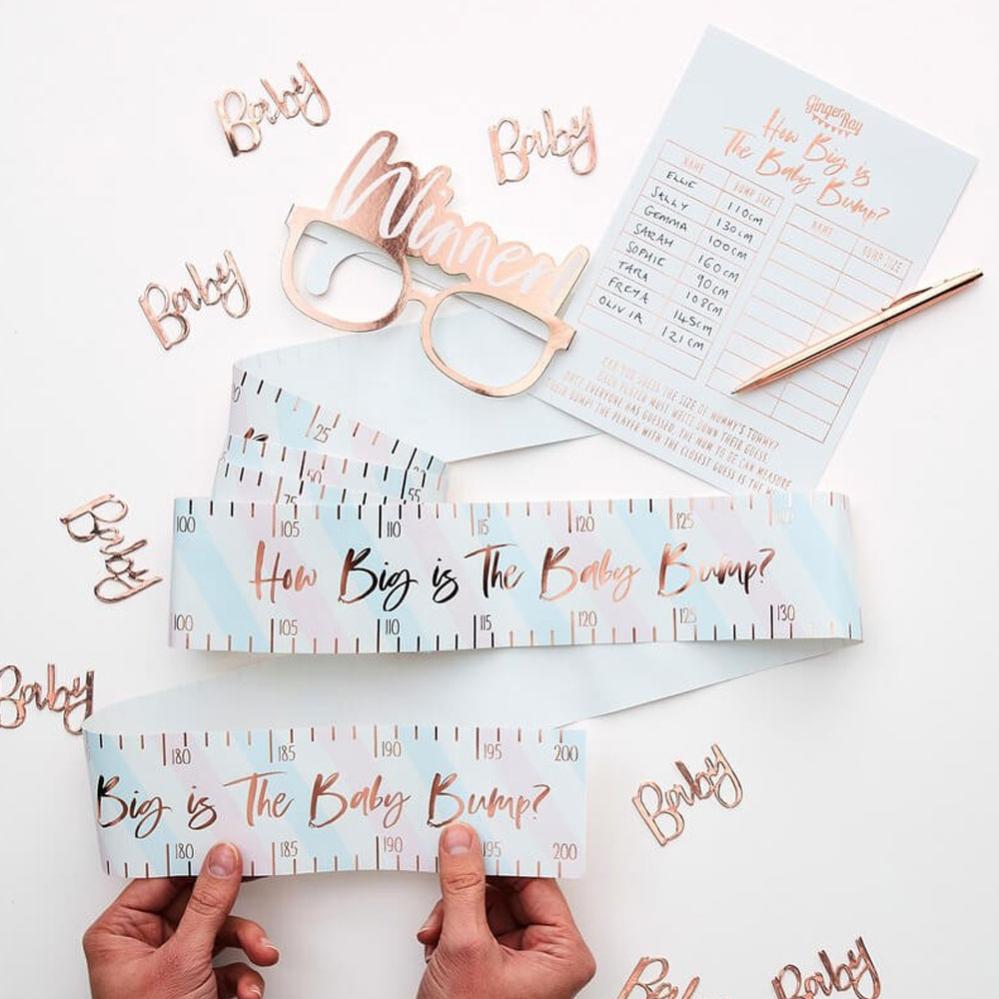 Baby
Baby
Winner
Baby
GingerRay
How Big is
The Baby Bump?
NAME BUMP SIZE NAME BUMP SIZE
ELLIE 110cm
SALLY 130cm
GEMMA 100cm
SARAH 160cm
SOPHIE 90cm
TARA 108cm
FREYA 145cm
OLIVIA 121cm
CAN YOU GUESS THE SIZE OF MUMMY'S TUMMY?
EACH PLAYER MUST WRITE DOWN THEIR GUESS.
ONCE EVERYONE HAS GUESSED, THE MUM TO BE CAN MEASURE
THEIR BUMP! THE PLAYER WITH THE CLOSEST GUESS IS THE
25
50
75 55
100 105 110 115 120 125
How Big is The Baby Bump?
100 105 110 115 120 125 130
Baby
Baby
180 185 190 195 200
Big is The Baby Bump?
180 185 190 195 200
Baby
Baby
Baby